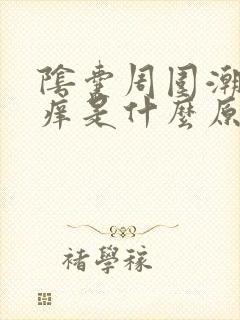 陰囊周围潮
痒是什麼原
褚學稼